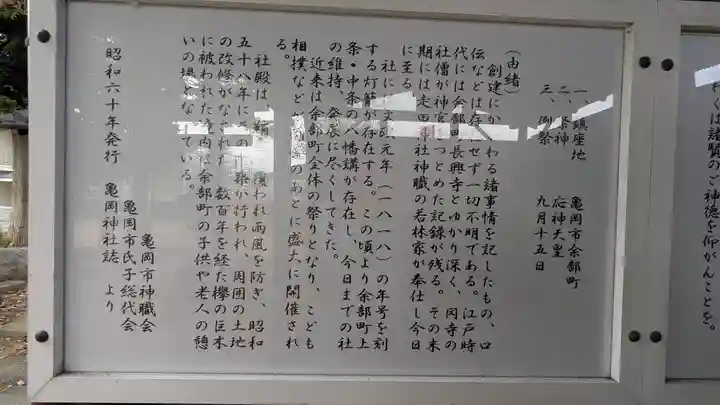 一、鎮座地　亀岡市余部町
二、祭神　応神天皇
三、例祭　九月十五日
(由緒)
創建にかかわる諸事情を記したもの、口
伝などは存在せず一切不明である。江戸時
代には余部町長興寺とゆかり深く、同寺の
社僧が神官をつとめた記録が残る。その末
期には走田神社神職の若林家が奉仕し今日
に至る。
社に文政元年(一八一八)の年号を刻
する灯籠が存在する。この頃より余部町上
条・中条の八幡講が存在し、今日までの社
の維持、発展に尽くしてきた。
近来は余部町全体の祭りとなり、こども
相撲など のあとに盛大に開催され
る。
社殿は、 覆われ雨風を防ぎ、昭和
五十八年にその 築が行われ、周囲の土地
の改修がなされた。数百年を経た欅の巨木
に被われた境内は余部町の子供や老人の憩
いの場となっている。
亀岡市神職会
亀岡市氏子総代会
昭和六十年発行　亀岡神社誌　より
れくは諸覧のご神徳を仰がんことを。